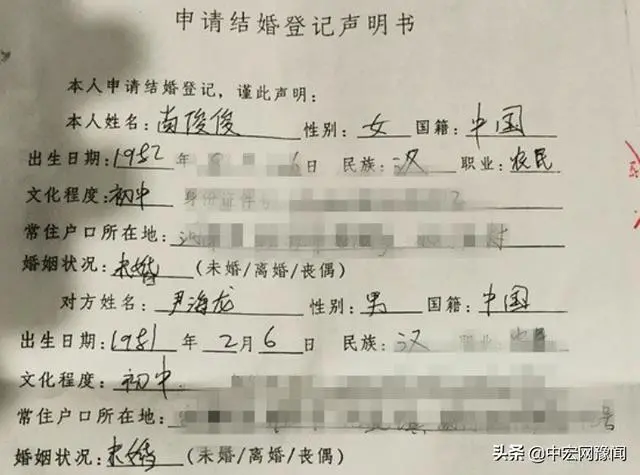 申请结婚登记声明书
本人申请结婚登记，谨此声明：
本人姓名：尚俊俊 性别：女 国籍：中国
出生日期：1982 年 日 民族：汉 职业：农民
文化程度：初中 身份证件
常住户口所在地： 村
婚姻状况：未婚 (未婚/离婚/丧偶)
对方姓名：尹海龙 性别：男 国籍：中国
出生日期：1981 年 2 月 6 日 民族：汉 职业：农民
文化程度：初中
常住户口所在地： 号
婚姻状况：未婚 (未婚/离婚/丧偶)
头条 @中宏网豫闻